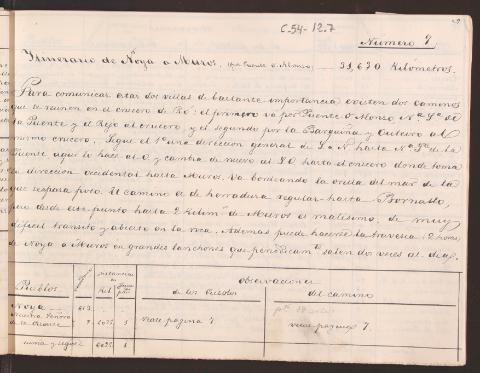 C.54-12.7
Número 7
Itinerario de Noya a Muros. (por Puente D. Alonso) 31,670 Kilómetros.
Para comunicar estas dos villas de bastante importancia existen dos caminos
que se reunen en el crucero de Roó: el primero va por Puente D. Alonso, Nª Sª de
la Puente y el Rejo al crucero, y el segundo por la Barquiña y Outeiro al
mismo crucero. Sigue el 1º una direccion general de S a N hasta Nª Sª de la
Puente aqui lo hace al O y cambia de nuevo al S O hasta el crucero donde toma
la direccion occidental hasta Muros. Va bordeando la orilla del mar de la
que se separa poco. El camino es de herradura regular hasta Bornalle,
desde este punto hasta 2 kilm. de Muros es malisimo, de muy
dificil transito y abierto en la roca. Ademas puede hacerse la travesia (2 horas)
de Noya a Muros en grandes lanchones que periodicamte salen dos veces al dia.
Pueblos distancias Kil. observaciones
de los Pueblos del camino
Noya
Nuestra Señora
de la Puente 7 6025 1 vease pagina 7 vease pagina 7.
suma y sigue 6025 1